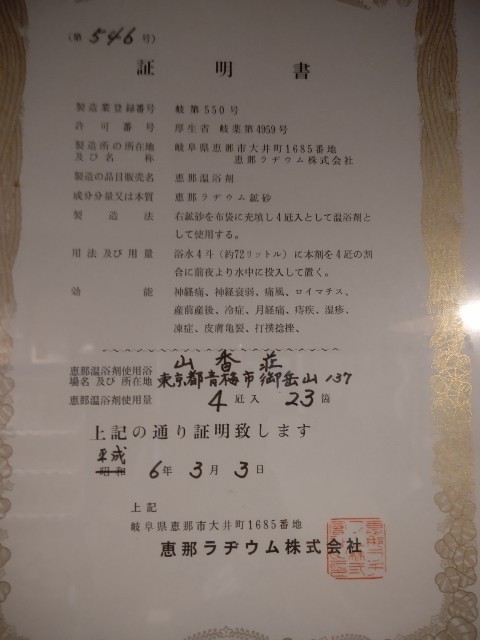 (第 546 号)
証明書
製造業登録番号 岐第550号
許可番号 厚生省 岐薬第4959号
製造所の所在地 岐阜県恵那市大井町1685番地
及び名称 恵那ラヂウム株式会社
製造の品目販売名 恵那温浴剤
成分分量又は本質 恵那ラヂウム鉱砂
製造法 右鉱砂を布袋に充填し4瓩入として温浴剤と
して使用する。
用法及び用量 浴水4斗(約72リットル)に本剤を4瓩の割
合に前夜より水中に投入して置く。
効能 神経痛、神経衰弱、痛風、ロイマチス、
産前産後、冷症、月経痛、痔疾、湿疹、
凍症、皮膚亀裂、打撲捻挫、
恵那温浴剤使用浴 山香荘
場名及び所在地 東京都青梅市御岳山137
恵那温浴剤使用量 4瓩入 23箇
上記の通り証明致します
平成
昭和 6年 3月 3日
上記
岐阜県恵那市大井町1685番地
恵那ラヂウム株式会社